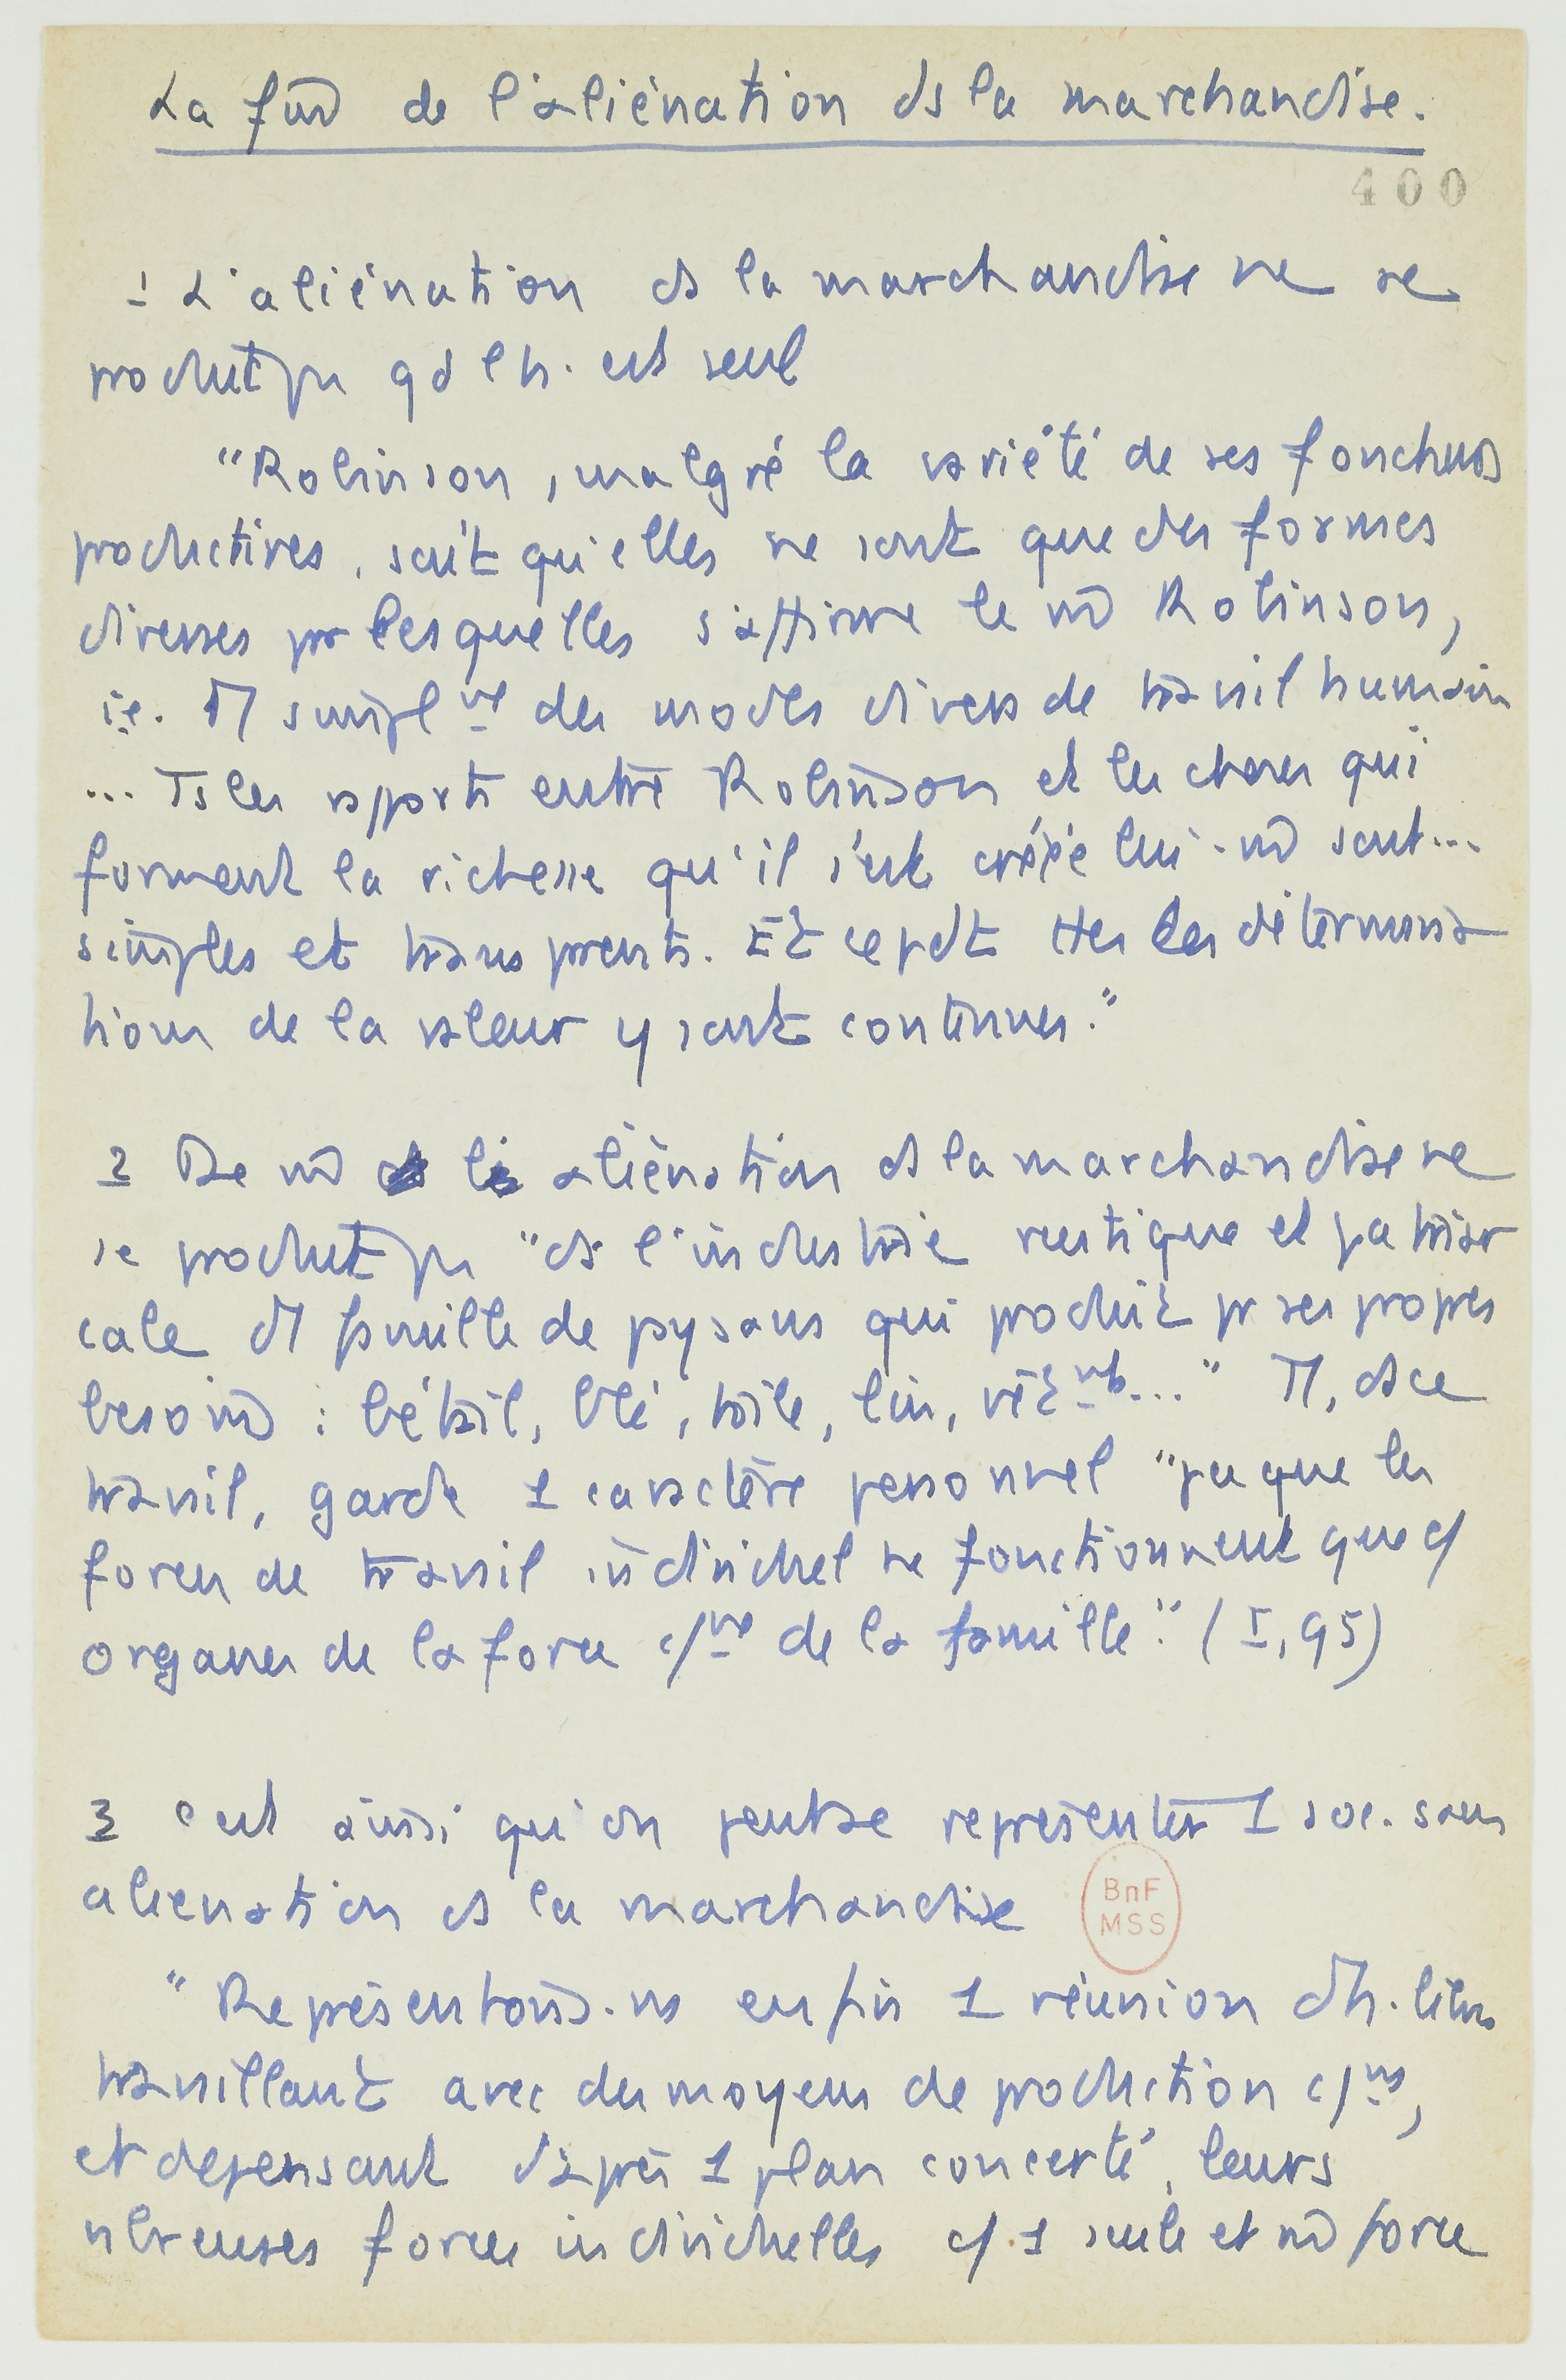 La fin de l'aliénation ds la marchandise.
400
1 L'aliénation ds la marchandise ne se
produit pas qd l'h. est seul
"Robinson, malgré la variété de ses fonctions
productives, sait qu'elles ne sont que des formes
diverses par lesquelles s'affirme le m̂ Robinson,
i.e. simplnt des modes divers de travail humain
... Ts les rapports entre Robinson et les choses qui
forment la richesse qu'il s'est créée lui-m̂ sont...
simples et transparents. Et cepdt ttes les détermina
tions de la valeur y sont contenues."
2 De m̂ aliénation ds la marchandise ne
se produit pas "ds l'industrie rustique et patriar
cale d'1 famille de paysans qui produit pr ses propres
besoins : bétail, blé, toile, lin, vêtnts..." ds ce
travail, garde 1 caractère personnel "pce que les
forces de travail individuel ne fonctionnent que c/
organes de la force c/ne de la famille." (I, 95)
3 C'est ainsi qu'on peut se représenter 1 soc. sans
aliénation ds la marchandise
BnF
MSS
"Représentons-ns enfin 1 réunion d'h. libres
travaillant avec des moyens de production c/ns,
et dépensant d'après 1 plan concerté, leurs
nbreuses forces individuelles c/ 1 seule et m̂ force